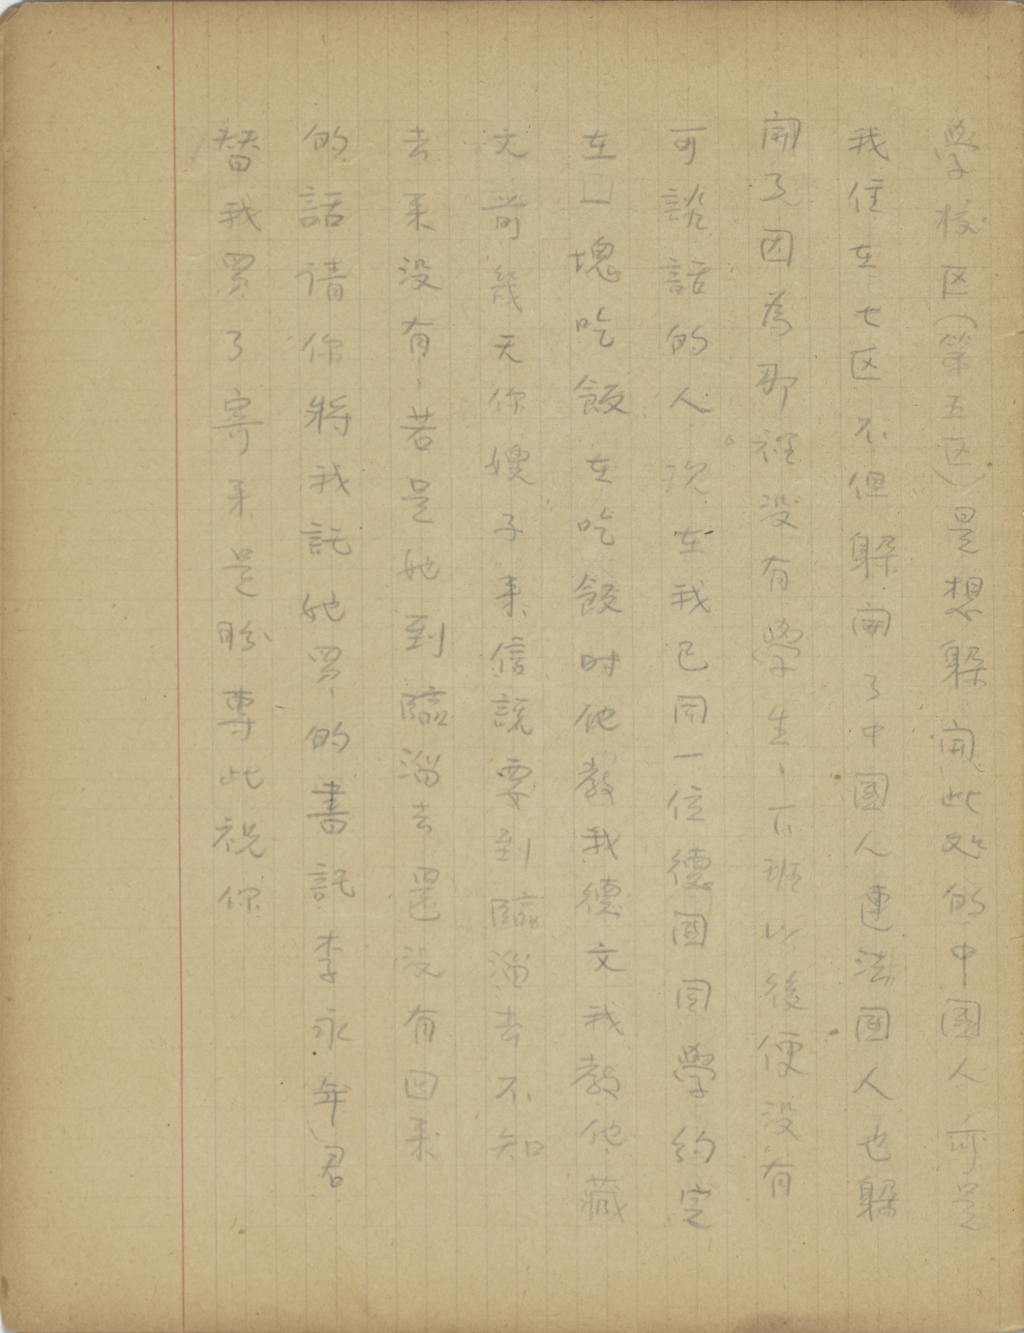 學校区(第五区)是想躲開此处的中國人可是
我住在七区不但躲開了中國人連法國人也躲
開了因為那裡没有學生、下班以後便没有
可談話的人。況在我已同一位德國同學約定
在一塊吃飯在吃飯时他教我德文我教他藏
文前幾天你嫂子来信說要到臨淄去不知
去来没有、若是她到臨淄去還没有回来
的話请你將我託她買的書託李永年君
替我買了寄来是盼專此祝你